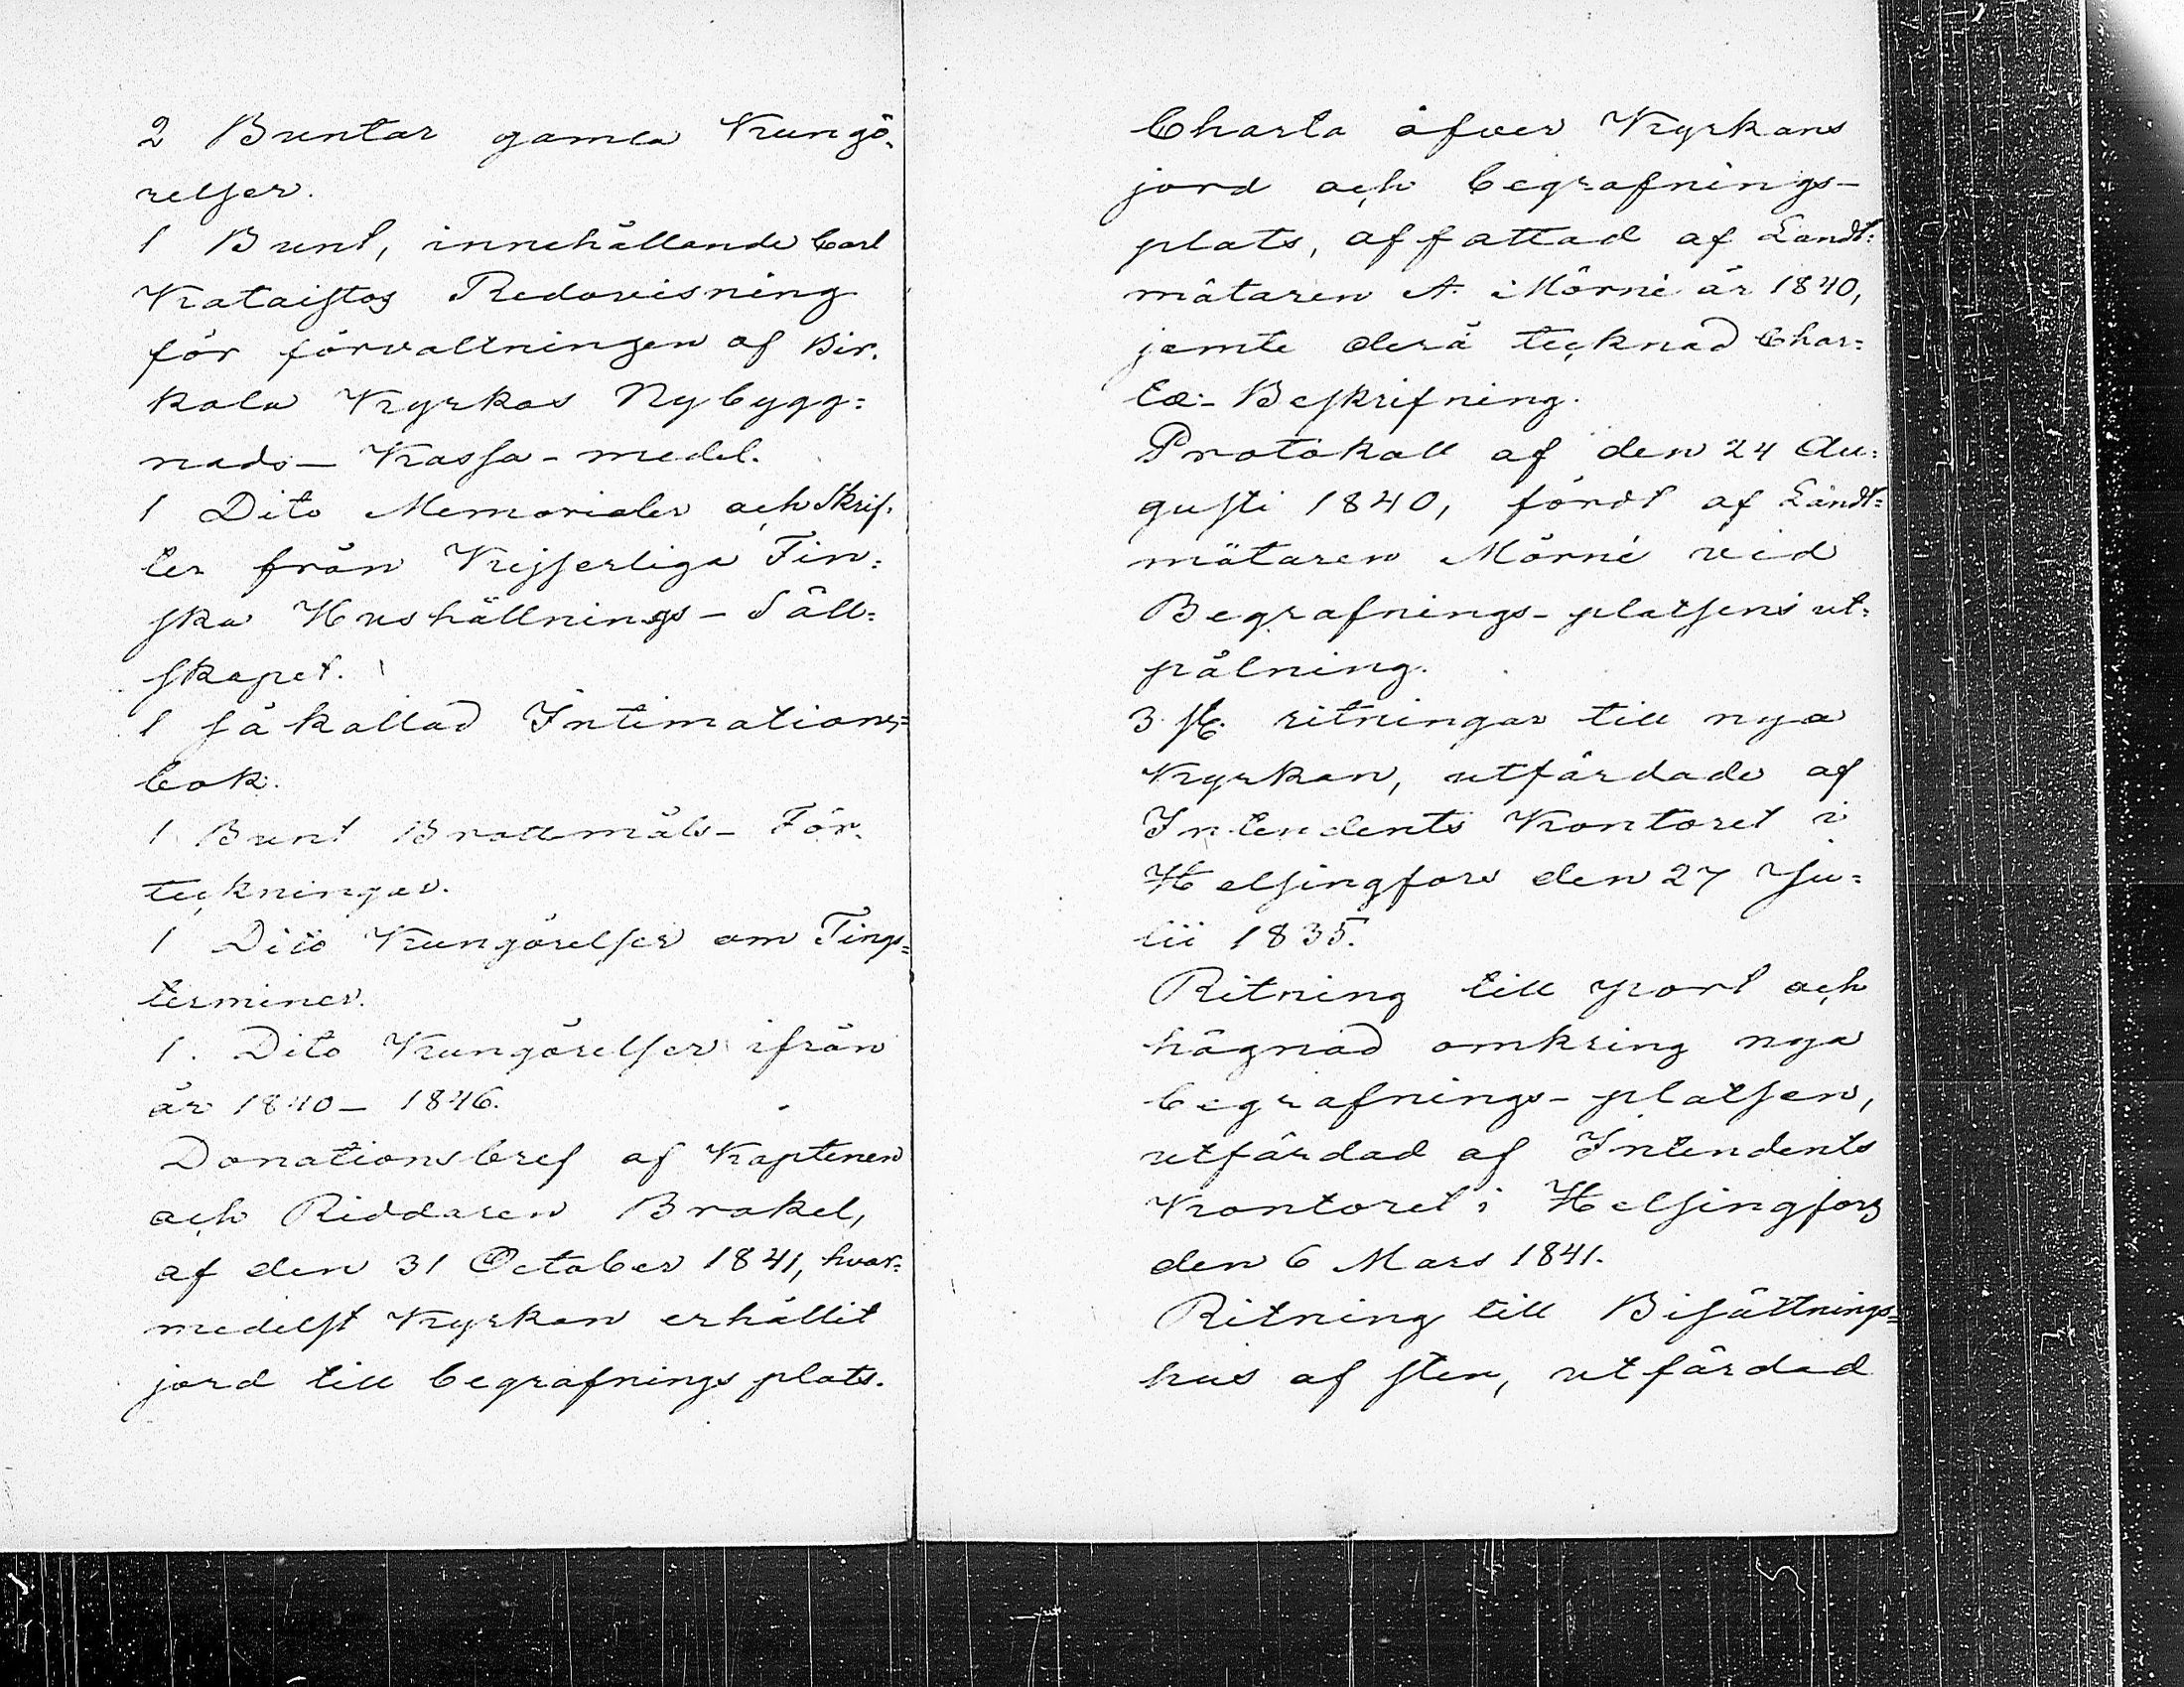 2 Buntar gamla Kungö-
relser.
1 Bunt, innehållande Carl
Kataistos Redovisning
för förvaltningen af Bir-
kala Kyrkas Nybygg=
nads- Kassa-medel.
1 Dito Memorialer och Skrif-
ter från Kejserliga Fin=
ska Hushållnings-Säll=
skapet.
1 så kallad Intimations=
bok.
1 Bunt Brottmåls- För-
teckningar.
1 Dito Kungörelser om Tings=
terminer.
1. Dito Kungörelser ifrån
år 1840- 1846.
Donationsbref af Kaptenen
och Riddaren Brakel,
af den 31 October 1841, hvar=
medelst Kyrkan erhållit
jord till begrafningsplats.
Charta öfver Kyrkans
jord och begrafnings-
plats, affattad af Landt=
mätaren A. Mörné år 1840,
jemte derå tecknad Char=
tæ-Beskrifning.
Protokoll af den 24 Au=
gusti 1840, fördt af Landt=
mätaren Mörné vid
Begrafnings-platsens ut=
pålning.
3 st. ritningar till nya
Kyrkan, utfärdade af
Intendents Kontoret i
Helsingfors den 27 Ju=
lii 1835.
Ritning till port och
hägnad omkring nya
begrafnings-platsen,
utfärdad af Intendents
Kontoret i Helsingfors
den 6 Mars 1841.
Ritning till Bisättnings=
hus af sten, utfärdad